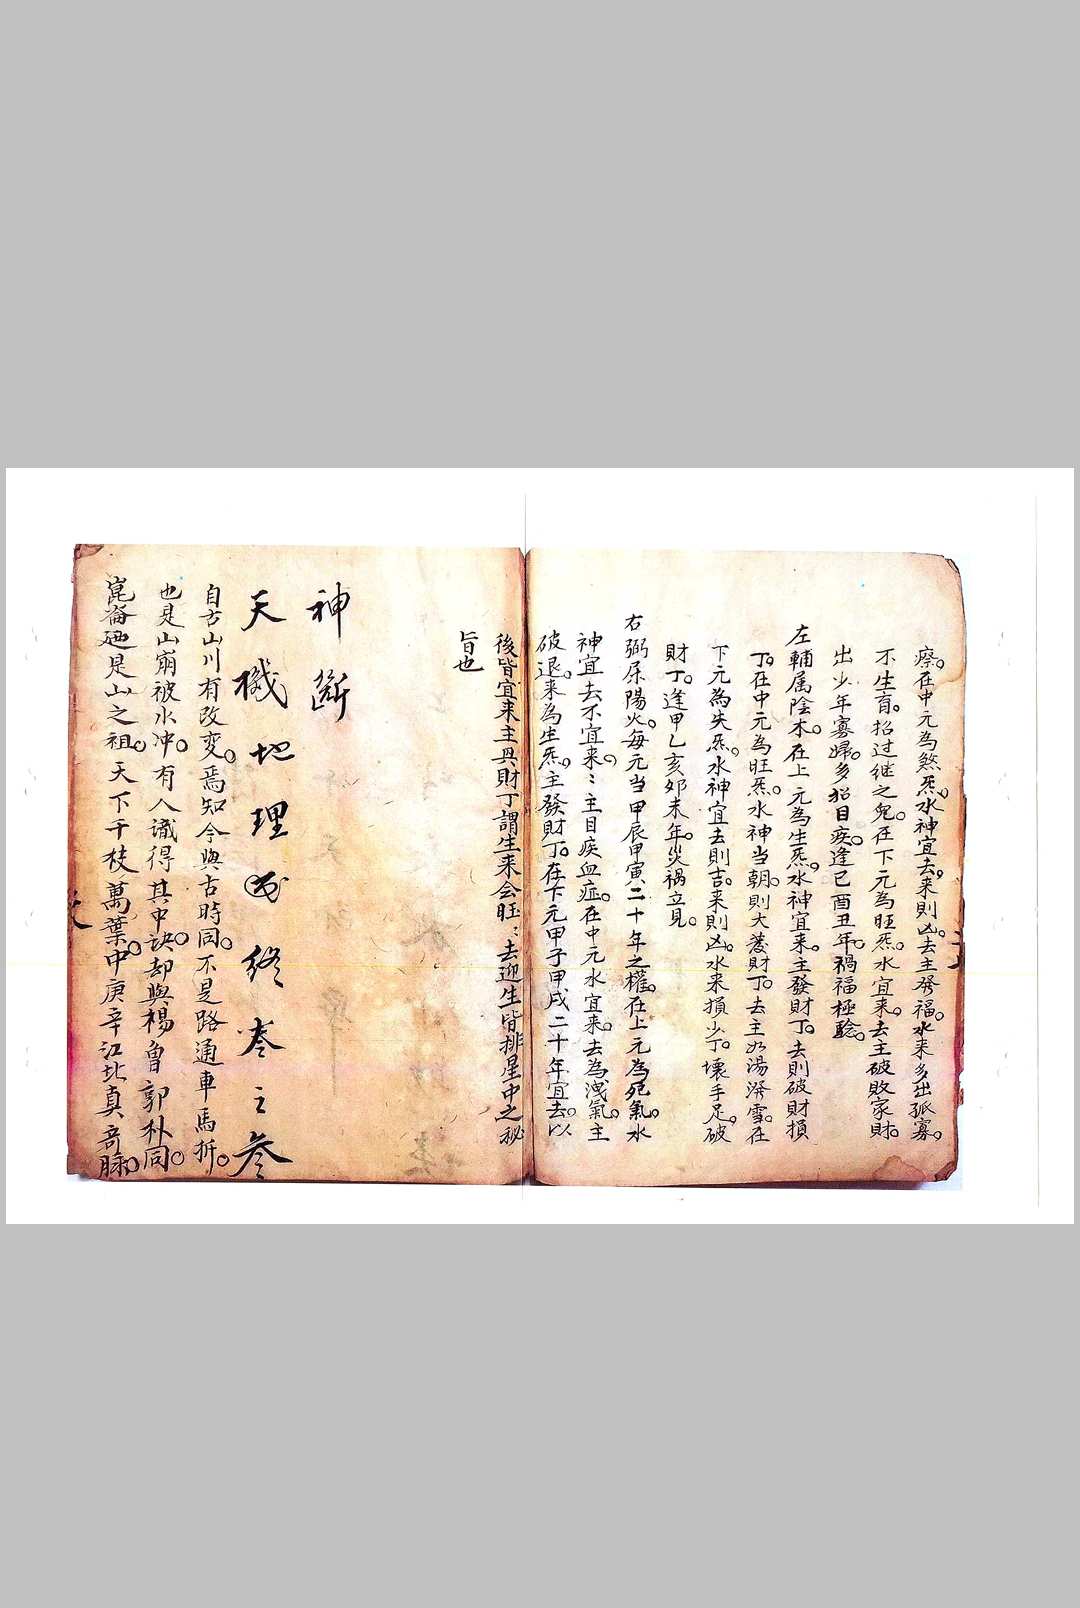 瘵。在中元為煞炁。水神宜去。来則凶。去主發福。水来多出孤寡。
不生育。招过继之兒。在下元為旺炁。水宜来。去主破敗家財。
出少年寡婦。多招目疾。逢巳酉丑年。禍福極驗。
左輔属陰木。在上元為生炁。水神宜来。主發財丁。去則破財損
丁。在中元為旺炁。水神当朝。則大發財丁。去主如湯潑雪。在
下元為失炁。水神宜去則吉。来則凶。水来損少丁。壞手足。破
財丁。逢甲乙亥卯未年。災禍立見。
右弼屬陽火。每元当甲辰甲寅二十年之權。在上元為死氣。水
神宜去不宜来：主目疾血症。在中元水宜来。去為洩氣。主
破退。来為生炁。主發財丁。在下元甲子甲戌二十年宜去。以
後皆宜来主興財丁謂生来会旺：去迎生皆排星中之秘
旨也
神斷
天機地理 終 卷之叁
自古山川有改变。焉知今與古時同。不是路通車馬折。
也是山崩被水冲。有人識得其中訣。却與楊曾郭朴同。
崑崙廻是山之祖。天下千枝萬葉。中庚辛江北真奇脉。